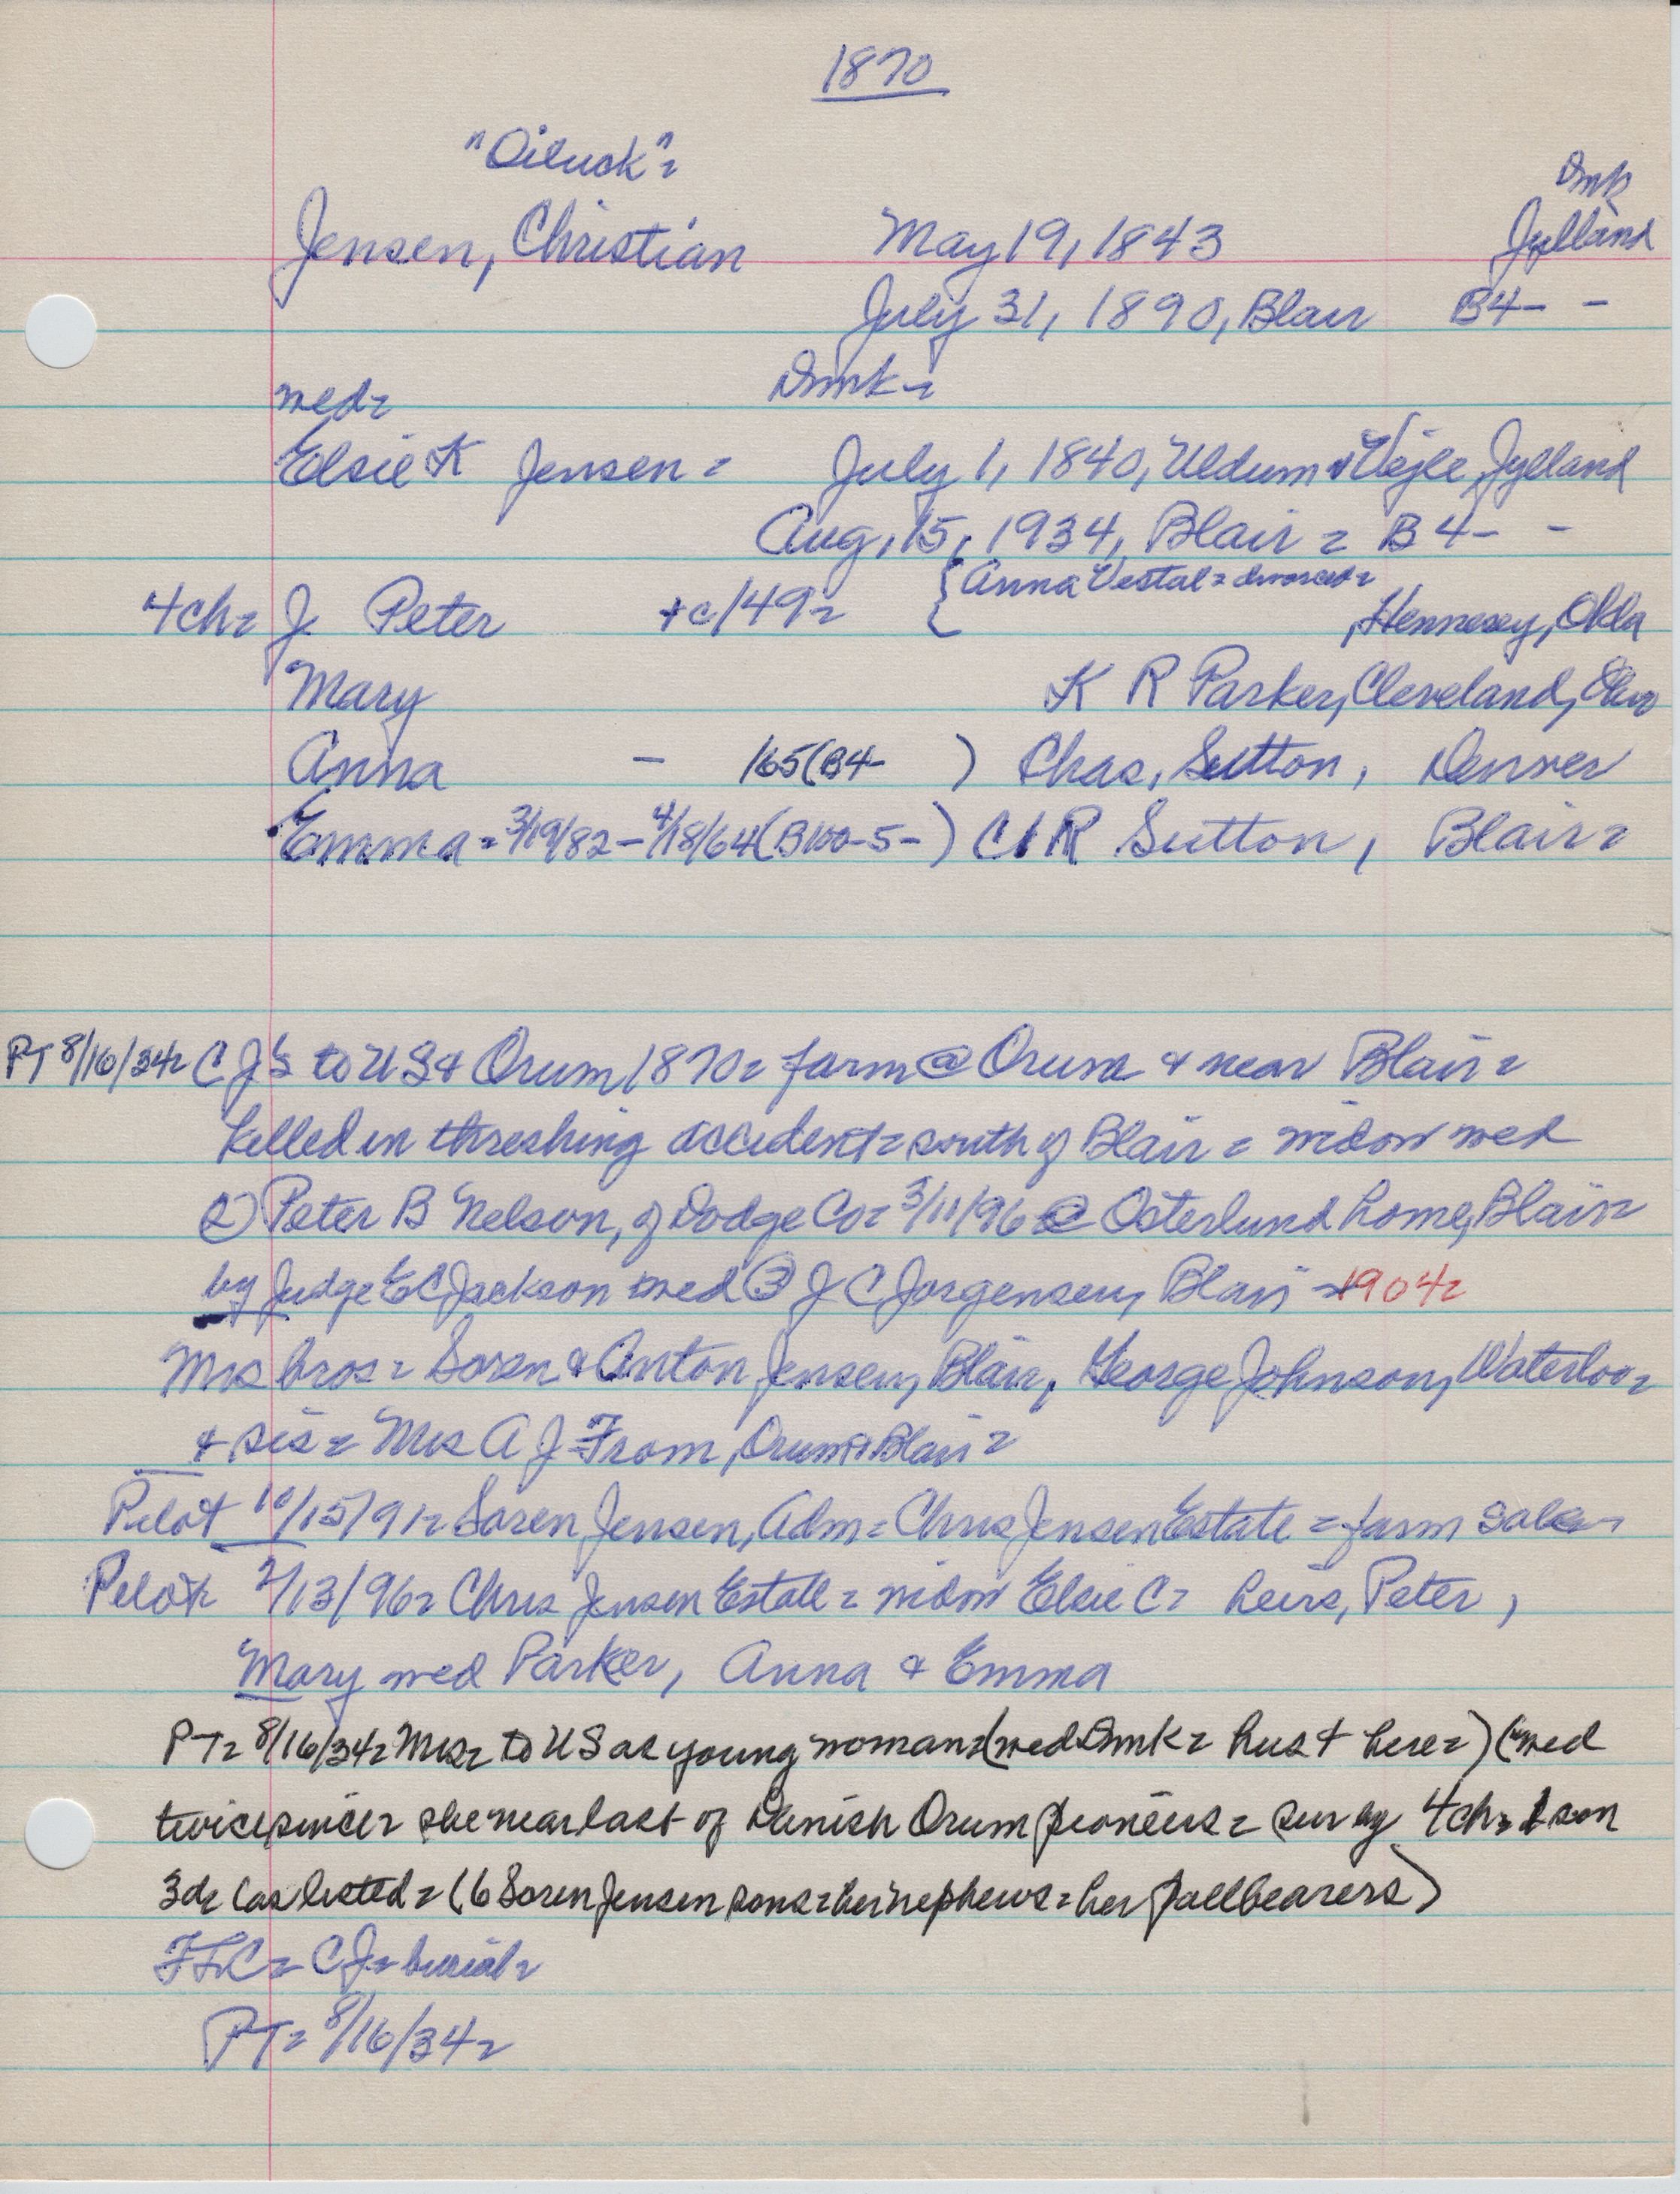 1870
"Oiluck" =
Dmk
Jensen, Christian May 19, 1843 Jylland
July 31, 1890, Blair B4- -
med= Dmk-
Elsie K Jensen = July 1, 1840, Uldum Vejle Jylland
Aug, 15, 1934, Blair = B4- -
{ Anna Vestal = divorced =
4ch= J Peter +c/49= , Hennesey, Okla
Mary K R Parker, Cleveland,
Anna - /65(B4- ) Chas, Sutton, Denver
Emma = 3/19/82 - 4/18/64 (B100-5-) C R Sutton, Blair =
PT 8/16/34= C J's to US & Orum 1870= farm @ Orum & near Blair =
killed in threshing accident = south of Blair = widow med
2) Peter B Nelson, of Dodge Co = 3/11/96 @ Osterlund home, Blair =
by Judge E C Jackson med (3) J C Jorgensen, Blair - 1904=
Mrs bros = Soren & Anton Jensen, Blair, George Johnson, Waterloo =
& sis = Mrs A J From, Orum & Blair =
Pilot 10/15/91= Soren Jensen, Adm = Chris Jensen Estate = farm sale
Pilot 2/13/96= Chris Jensen Estate = widow Elsie C = heirs, Peter,
Mary med Parker, Anna & Emma
PT= 8/16/34= Mrs= to US as young woman=(med Dmk= hus + here=) (med
twice since= she near last of Danish Orum pioneers = sur by 4ch= 1 son
3d= (as listed = (6 Soren Jensen sons = her nephews = her pallbearers)
FFC= C J= burial=
PT= 8/16/34=